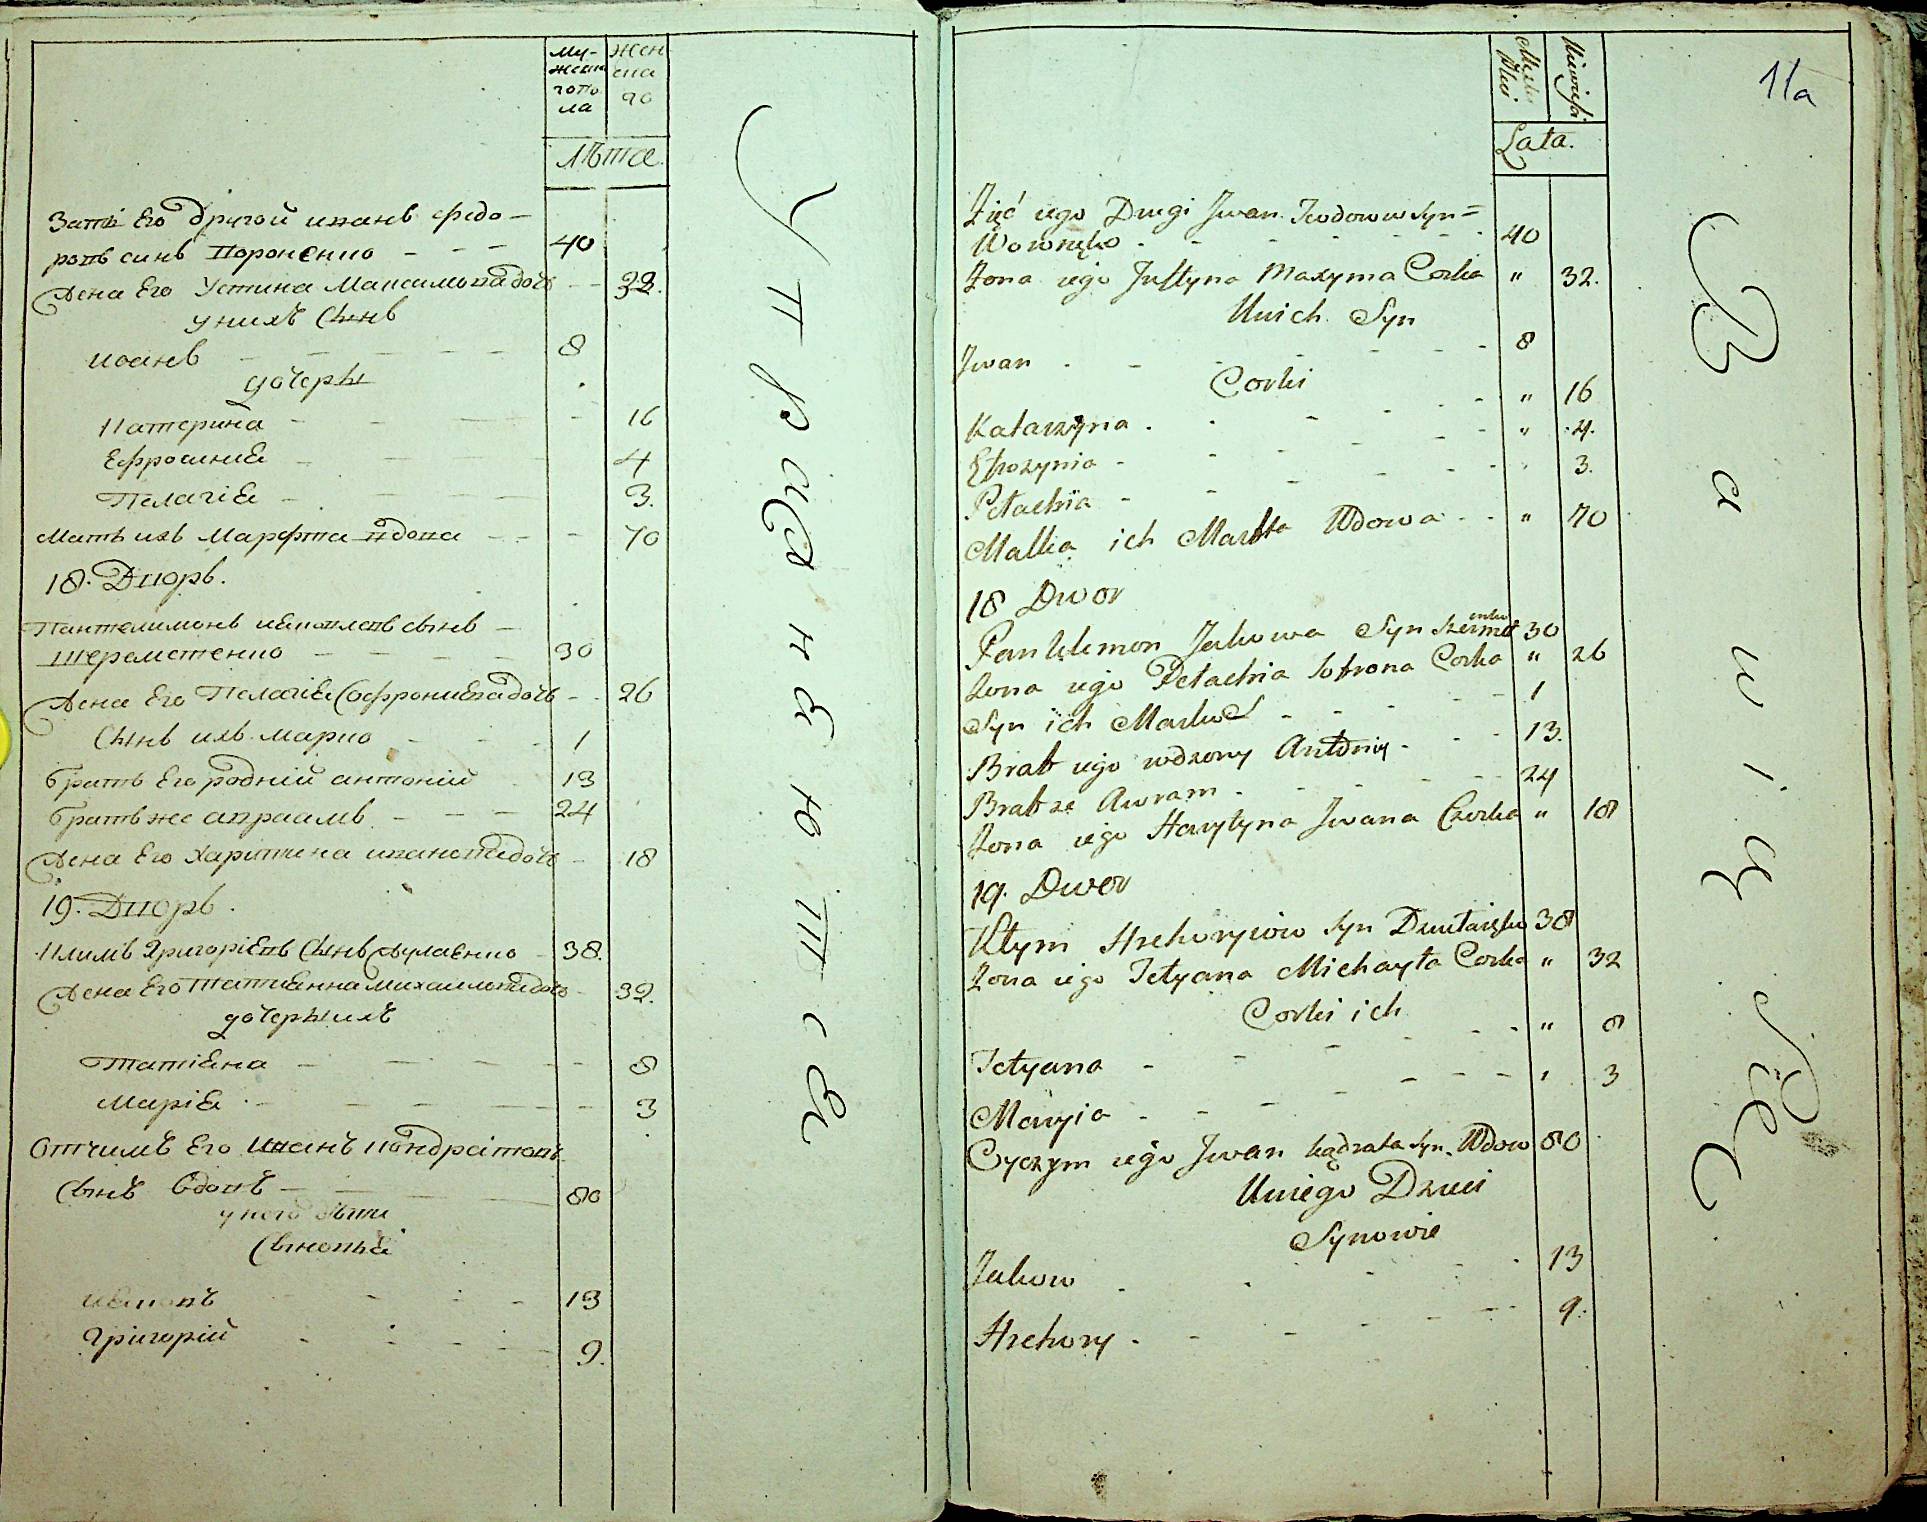 Му-
жеска
гопо
ла
жен
ска
го
Лѣта.
Зять Его другой иванъ федо-
ровъ синъ Вороненко 40
Жена Его Устина Максимовадочь 32.
унихъ Сынъ
иванъ 8
дочеры
Катерина 16
Ефросиния 4
Пелагіѣ 3.
Мать ихъ Марфта вдова 70
18. Дворъ.
Пантелимонъ иаковлевъ сынъ
Шереметенко 30
Жена Его Пелагіѣ Софрониевадочь 26
Сынъ ихъ марко 1
братъ Его родній антоній 13
братъ же авраамъ 24
Жена Его Харитина ивановадочь 18
19. Дворъ.
Климъ Григоріевъ Сынъ 38.
Жена Его Татиянна Михаиловадочь 32.
дочеры ихъ
Татіяна 8
Маріѣ 3
Отчимъ Его Иванъ Кондратовъ
Сынъ вдовъ 80
у него дѣти
Сыновья
иаковъ 13
Григорій 9.
11a
Lata.
Zięć iego Drugi Jwan Teodorow Syn =
Woronęko 40
Żona iego Justyna Maxyma Corka " 32.
Unich Syn
Jwan 8
Corki
Katarzyna " 16
Efrozynia " 4.
Pelachia 3.
Matka ich Marfta Wdowa " 70
18 Dwor
Pantelimon Jakowa Syn Szeremet enko 30
Żona iego Pelachia Sofrona Corka " 26
Syn ich Marko 1
Brat iego rodzony Antoniy 13.
Brat ze Awram 24
Żona iego Harytyna Jwana Czorka " 18
19. Dwor
Kłym Hrehoryiow Syn 38
Żona iego Tetyana Michayła Corka " 32
Corki ich
Tetyana " 8
Maryia 3
Oyczym iego Jwan kądrata Syn. Wdow 80
Uniego Dzieci
Synowie
Jakow 13
Hrehory 9.